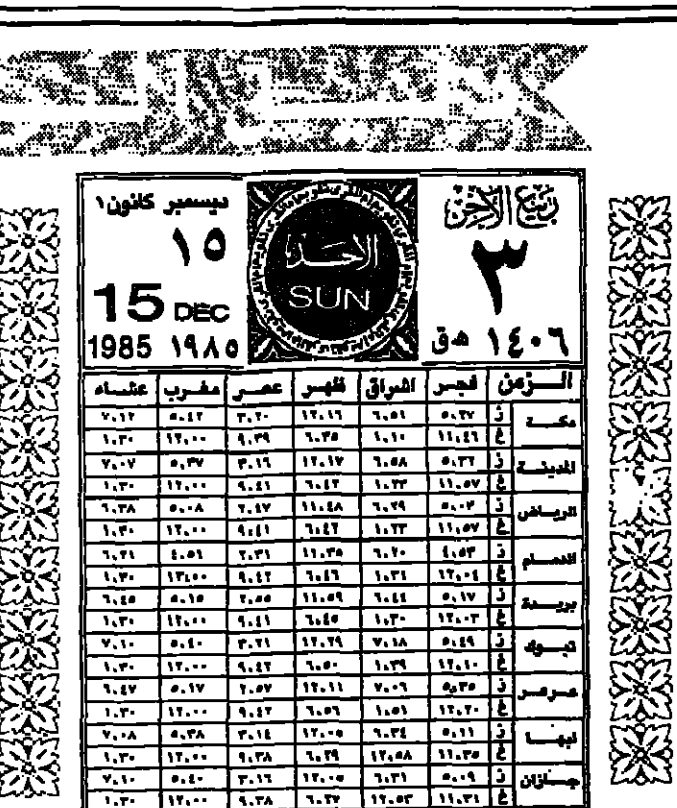 ربيع الآخر
٣
١٤٠٦ هـ ق
الأحد
SUN
ديسمبر كانون١
١٥
15 DEC
1985 ١٩٨٥
الـزمن فجـر اشراق ظهـر عصـر مغـرب عشـاء
مكـة ز ٥،٢٧ ٦،٥١ ١٢،١٦ ٣،٢٠ ٥،٤٢ ٧،١٢
غ ١١،٤٦ ١،١٠ ٦،٣٥ ٩،٣٩ ١٢،٠٠ ١،٣٠
المدينـة ز ٥،٣٢ ٦،٥٨ ١٢،١٧ ٣،١٦ ٥،٣٧ ٧،٠٧
غ ١١،٥٧ ١،٢٢ ٦،٤٢ ٩،٤١ ١٢،٠٠ ١،٣٠
الريـاض ز ٥،٠٣ ٦،٢٩ ١١،٤٨ ٢،٤٧ ٥،٠٨ ٦،٣٨
غ ١١،٥٧ ١،٢٢ ٦،٤٢ ٩،٤١ ١٢،٠٠ ١،٣٠
الدمـام ز ٤،٥٣ ٦،٢٠ ١١،٣٥ ٢،٣١ ٤،٥١ ٦،٢١
غ ١٢،٠٤ ١،٣١ ٦،٤٦ ٩،٤٢ ١٢،٠٠ ١،٣٠
بريـدة ز ٥،١٧ ٦،٤٤ ١١،٥٩ ٢،٥٥ ٥،١٥ ٦،٤٥
غ ١٢،٠٣ ١،٣٠ ٦،٤٥ ٩،٤١ ١٢،٠٠ ١،٣٠
تبـوك ز ٥،٤٩ ٧،١٨ ١٢،٢٩ ٣،٢١ ٥،٤٠ ٧،١٠
غ ١٢،١٠ ١،٣٩ ٦،٥٠ ٩،٤٢ ١٢،٠٠ ١،٣٠
عـرعـر ز ٥،٣٥ ٧،٠٦ ١٢،١١ ٢،٥٧ ٥،١٧ ٦،٤٧
غ ١٢،٢٠ ١،٥١ ٦،٥٦ ٩،٤٢ ١٢،٠٠ ١،٣٠
ز ٥،١١ ٦،٣٤ ١٢،٠٥ ٣،١٤ ٥،٣٨ ٧،٠٨
غ ١١،٣٥ ١٢،٥٨ ٦،٢٩ ٩،٣٨ ١٢،٠٠ ١،٣٠
جـازان ز ٥،٠٩ ٦،٣١ ١٢،٠٥ ٣،١٦ ٥،٤٠ ٧،١٠
غ ١١،٣١ ١٢،٥٣ ٦،٢٧ ٩،٣٨ ١٢،٠٠ ١،٣٠